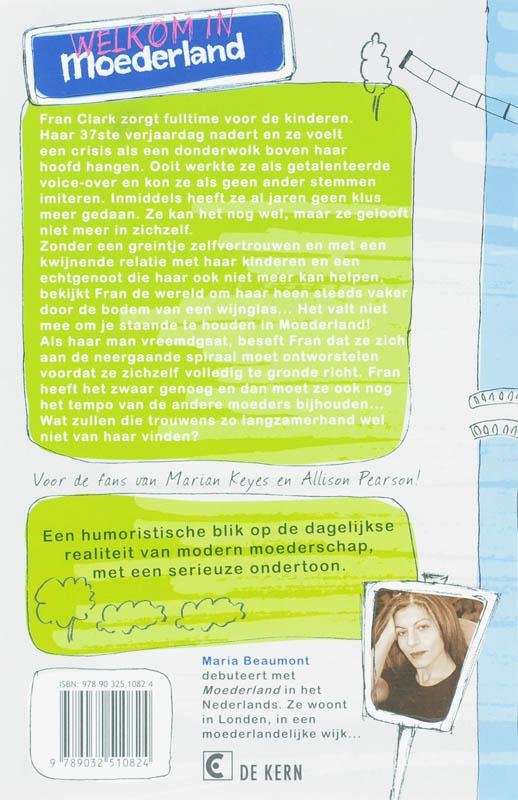 WELKOM IN
Moederland
Fran Clark zorgt fulltime voor de kinderen.
Haar 37ste verjaardag nadert en ze voelt
een crisis als een donderwolk boven haar
hoofd hangen. Ooit werkte ze als getalenteerde
voice-over en kon ze als geen ander stemmen
imiteren. Inmiddels heeft ze al jaren geen klus
meer gedaan. Ze kan het nog wel, maar ze gelooft
niet meer in zichzelf.
Zonder een greintje zelfvertrouwen en met een
kwijnende relatie met haar kinderen en een
echtgenoot die haar ook niet meer kan helpen,
bekijkt Fran de wereld om haar heen steeds vaker
door de bodem van een wijnglas... Het valt niet
mee om je staande te houden in Moederland!
Als haar man vreemdgaat, beseft Fran dat ze zich
aan de neergaande spiraal moet ontworstelen
voordat ze zichzelf volledig te gronde richt. Fran
heeft het zwaar genoeg en dan moet ze ook nog
het tempo van de andere moeders bijhouden...
Wat zullen die trouwens zo langzamerhand wel
niet van haar vinden?
Voor de fans van Marian Keyes en Allison Pearson!
Een humoristische blik op de dagelijkse
realiteit van modern moederschap,
met een serieuze ondertoon.
Maria Beaumont
debuteert met
Moederland in het
Nederlands. Ze woont
in Londen, in een
moederlandelijke wijk...
ISBN: 978 90 325 1082 4
9 789032 510824
DE KERN